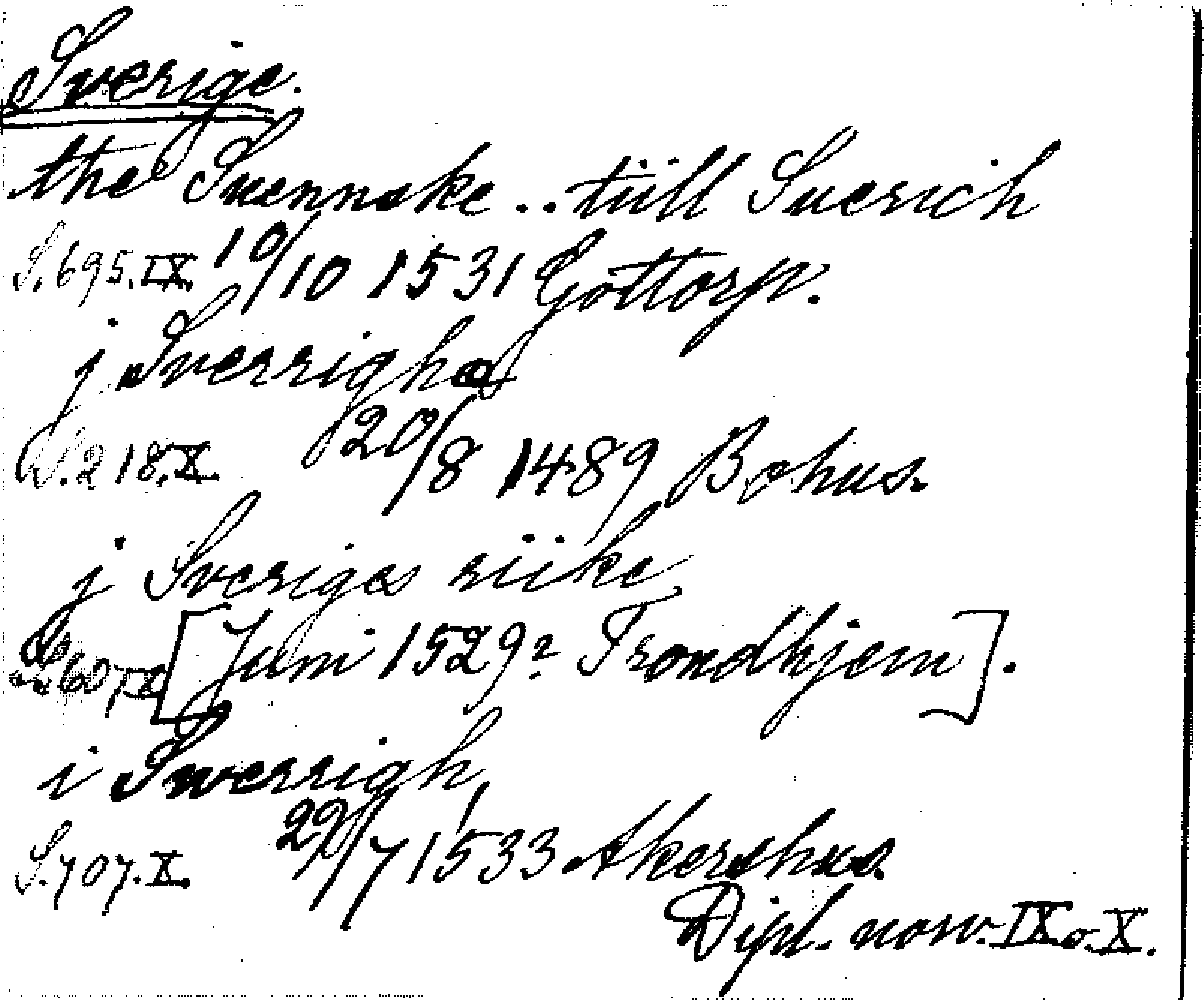 Sverige.
the Suennske .. tiill Suerich
S. 695. IX. 10/10 1531 Gottorp.
j Sverrighe
S. 218. X. 20/8 1489 Bohus.
j Sveriges riike
[Juni 1529? Trondhjem].
i Swerrigh
S. 707. X. 22/7 1533 Akershus.
Dipl. norv. IX o. X.